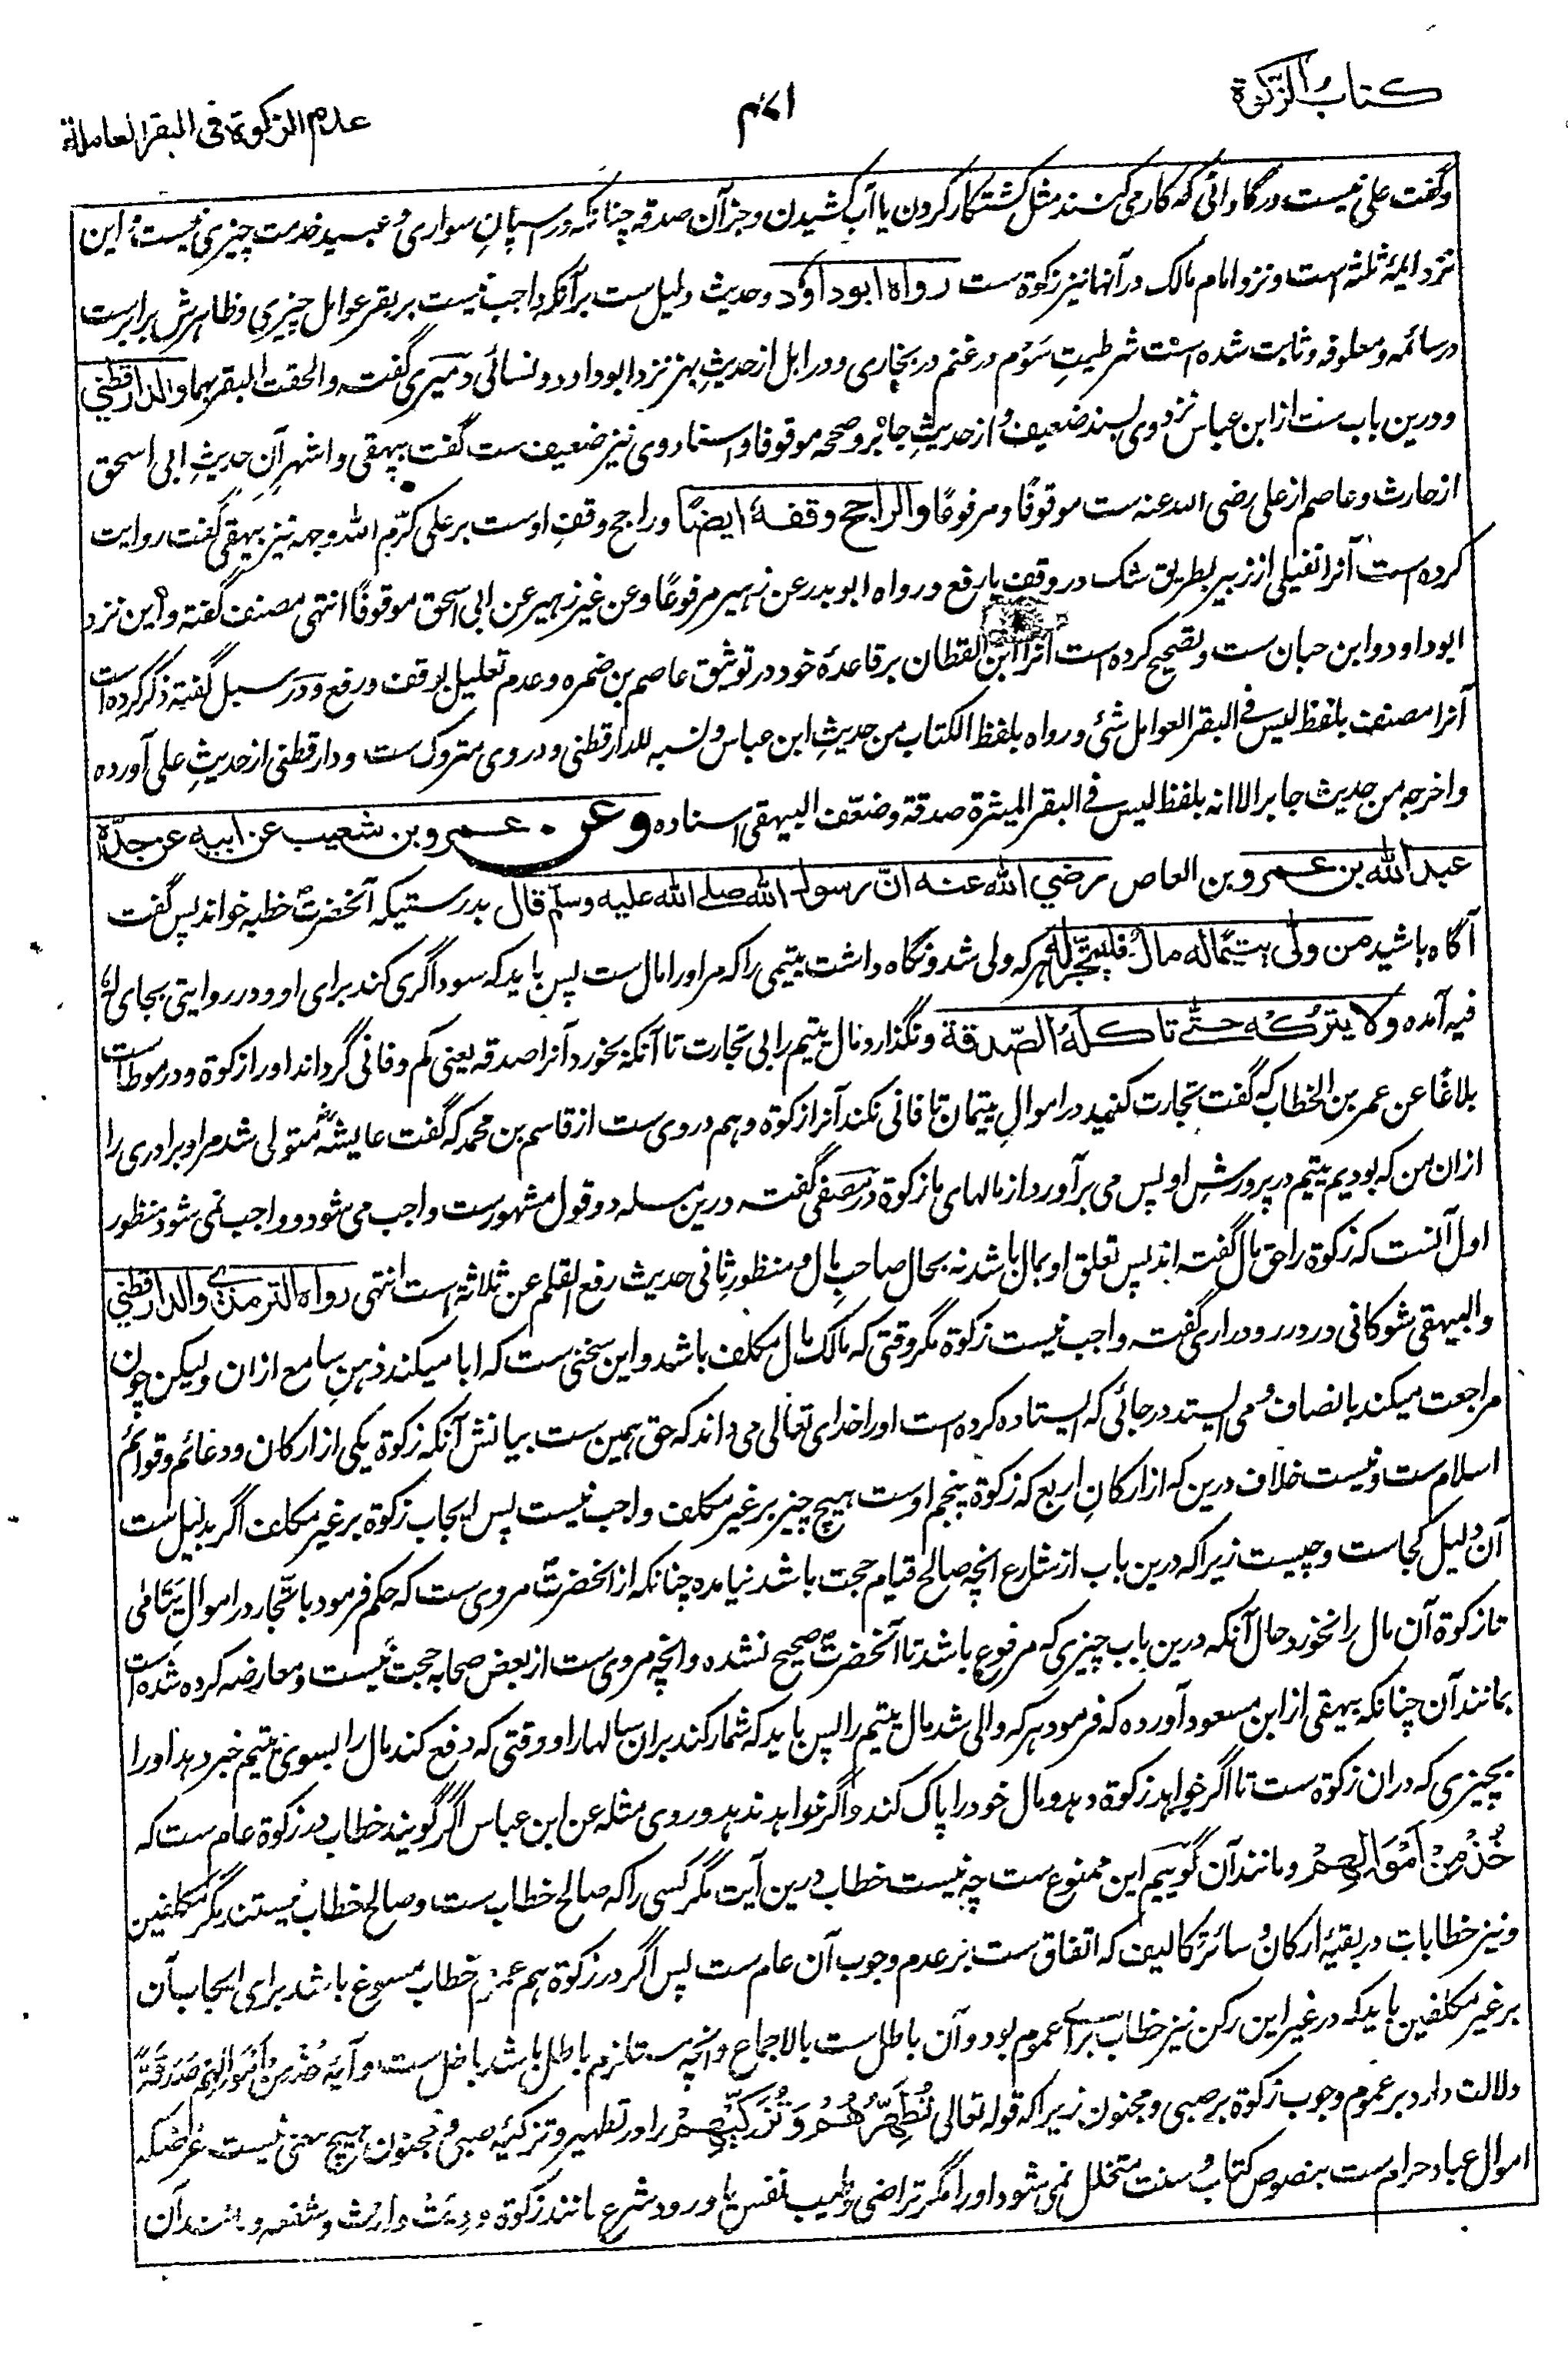 کتاب الزکوة
۴۷۱
عدم الزکوة فی البقر العاملة
وگفت علی نیست در گاوانی که کار می کنند مثل کشتکار کردن یا آب کشیدن و جز آن صدقه چنانکه در اسپانِ سواری و عبیدِ خدمت چیزی نیست و این
نزد ایمهٔ ثلثه است و نزد امام مالک در آنها نیز زکوة ست رواه ابو داؤد وحدیث دلیل ست بر آنکه واجب نیست بر بقر عوامل چیزی وظاهرش برابرست
در سائمه و معلوفه و ثابت شده است شرطیتِ سَوْم در غنم در بخاری و در ابل از حدیثِ بهز نزد ابو داود و نسائی و دمیری گفته والحقت البقر بهما والدارقطنی
و درین باب ست از ابن عباس نزد وی بسند ضعیف و از حدیثِ جابر و صححه موقوفا و اسناد وی نیز ضعیف ست گفت بیهقی و اشهر آن حدیثِ ابی اسحق
از حارث و عاصم از علی رضی الله عنه ست موقوفًا و مرفوعًا والراجح وقفه ایضًا و راجح وقفِ اوست بر علی کرّم الله وجهه نیز بیهقی گفت روایت
کرده است آنرا نفیلی از زبیر بطریق شک در وقف یا رفع و رواه ابو بدر عن زهیر مرفوعًا و عن غیر زهیر عن ابی اسحق موقوفًا انتهی مصنف گفته و این نزد
ابو داود و ابن حبان ست و تصحیح کرده است آنرا ابن القطان بر قاعدهٔ خود در توثیق عاصم بن ضمره و عدم تعلیل بوقف و رفع و در سبل گفته ذکر کرده است
آنرا مصنف بلفظ لیس فی البقر العوامل شئ و رواه بلفظ الکتاب من حدیثِ ابن عباس و نسبه للدارقطنی و در وی متروک ست و دارقطنی از حدیثِ علی آورده
واخرجه من حدیث جابر الا انه بلفظ لیس فی البقر المیثرة صدقة وضعّف البیهقی اسناده وعن عمرو بن شعیب عن ابیه عن جدّه
عبد الله بن عمرو بن العاص رضی الله عنه انّ رسول الله صلے الله علیه وسلم قال بدرستیکه آنحضرتؐ خطبه خواند پس گفت
آگاه باشید من ولّی یتیمًا له مالٌ فلیتّجر له هر که ولی شد و نگاه داشت یتیمی را که مر او را مال ست پس باید که سوداگری کند برای او و در روایتی بجای له
فیه آمده ولا یترکه حتّے تاکله الصّدقة و نگذارد مال یتیم را بی تجارت تا آنکه بخورد آنرا صدقه یعنی کم و فانی گرداند او را زکوة و در موطاست
بلاغًا عن عمر بن الخطاب که گفت تجارت کنید در اموالِ یتیمان تا فانی نکند آنرا زکوة و هم در وی ست از قاسم بن محمد که گفت عایشهؓ متولی شد مرا و برادری را
از ان من که بودیم یتیم در پرورشِ او پس می برآورد از مالهای ما زکوة در مصفی گفته درین مسله دو قول مشهورست واجب می شود و واجب نمی شود منظور
اول آنست که زکوة را حق مال گفته اند پس تعلق او بمال باشد نه بحال صاحبِ مال و منظورِ ثانی حدیث رفع القلم عن ثلاثه است انتهی رواه الترمذی والدارقطنی
والبیهقی شوکانی در درر و دراری گفته واجب نیست زکوة مگر وقتی که مالکِ مال مکلف باشد و این سخنی ست که ابا میکند ذهنِ سامع از ان ولیکن چون
مراجعت میکند بانصاف و می ایستد در جائی که ایستاده کرده است او را خدای تعالی می داند که حق همین ست بیانش آنکه زکوة یکی از ارکان و دعائم و قوائم
اسلام ست و نیست خلاف درین که از ارکانِ اربع که زکوة پنجمِ اوست هیچ چیز بر غیر مکلف واجب نیست پس ایجاب زکوة بر غیر مکلف اگر بدلیل ست
آن دلیل کجاست و چیست زیرا که درین باب از شارع انچه صالحِ قیام حجت باشد نیامده چنانکه از آنحضرتؐ مروی ست که حکم فرمود باتجار در اموالِ یتامٰی
تا زکوة آن مال را نخورد حال آنکه درین باب چیزی که مرفوع باشد تا آنحضرتؐ صحیح نشده و انچه مروی ست از بعض صحابه حجت نیست و معارضه کرده شده است
بمانند آن چنانکه بیهقی از ابن مسعود آورده که فرمود هر که والی شد مالِ یتیم را پس باید که شمار کند بر ان سالها را و وقتی که دفع کند مال را بسوی یتیم خبر دهد او را
بچیزی که در ان زکوة ست تا اگر خواهد زکوة دهد و مال خود را پاک کند و اگر خواهد ندهد و روی مثله عن ابن عباس اگر گویند خطاب در زکوة عام ست که
خُذْ مِنْ اَمْوَالِهِمْ و مانند آن گوییم این ممنوع ست چه نیست خطاب درین آیت مگر کسی را که صالحِ خطاب ست و صالحِ خطاب نیستند مگر مکلفین
و نیز خطابات در بقیهٔ ارکان و سائر تکالیف که اتفاق ست بر عدم وجوب آن عام ست پس اگر در زکوة هم عموم خطاب مسوغ باشد برای ایجاب آن
بر غیر مکلفین باید که در غیر این رکن نیز خطاب برائے عموم بود و آن باطل ست بالاجماع و انچه مستلزم باطل باشد باطل ست و آیهٔ خُذْ مِنْ اَمْوَالِهِمْ صَدَقَةً
دلالت دارد بر عموم وجوب زکوة بر صبی و مجنون زیرا که قوله تعالی تُطَهِّرُهُمْ وَتُزَكِّیْهِمْ را در تطهیر و تزکیهٔ صبی و مجنون هیچ معنی نیست غرضکه
اموال عباد حرام ست بنصوص کتاب و سنت متخلل نمی شود او را مگر تراضی و طیبِ نفس یا ورود شرع مانند زکوة و دیت و ارث و شفعه و مانند آن